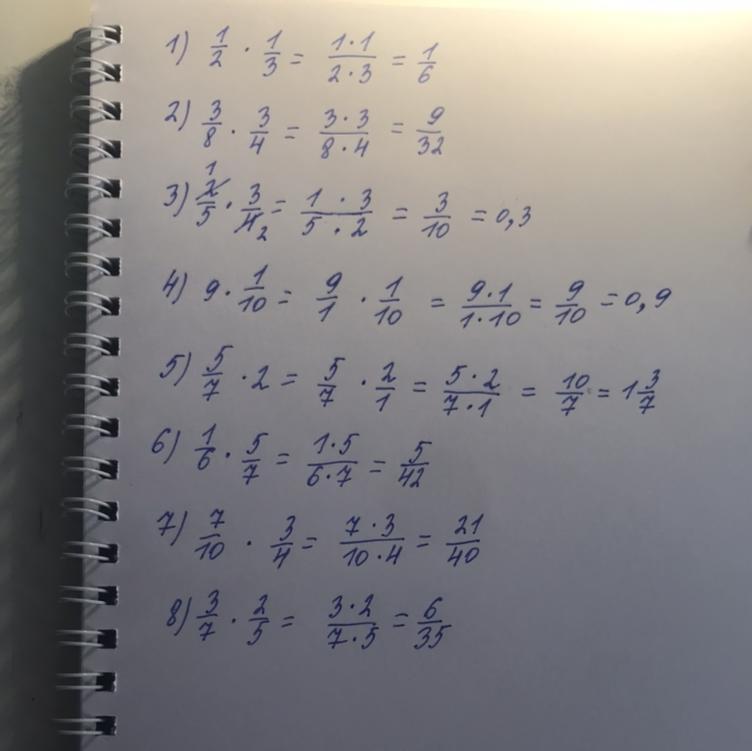 1) 1/2 · 1/3 = 1·1/2·3 = 1/6
2) 3/8 · 3/4 = 3·3/8·4 = 9/32
3) 2/5 · 3/4 = 1·3/5·2 = 3/10 = 0,3
4) 9 · 1/10 = 9/1 · 1/10 = 9·1/1·10 = 9/10 = 0,9
5) 5/7 · 2 = 5/7 · 2/1 = 5·2/7·1 = 10/7 = 1 3/7
6) 1/6 · 5/7 = 1·5/6·7 = 5/42
7) 7/10 · 3/4 = 7·3/10·4 = 21/40
8) 3/7 · 2/5 = 3·2/7·5 = 6/35